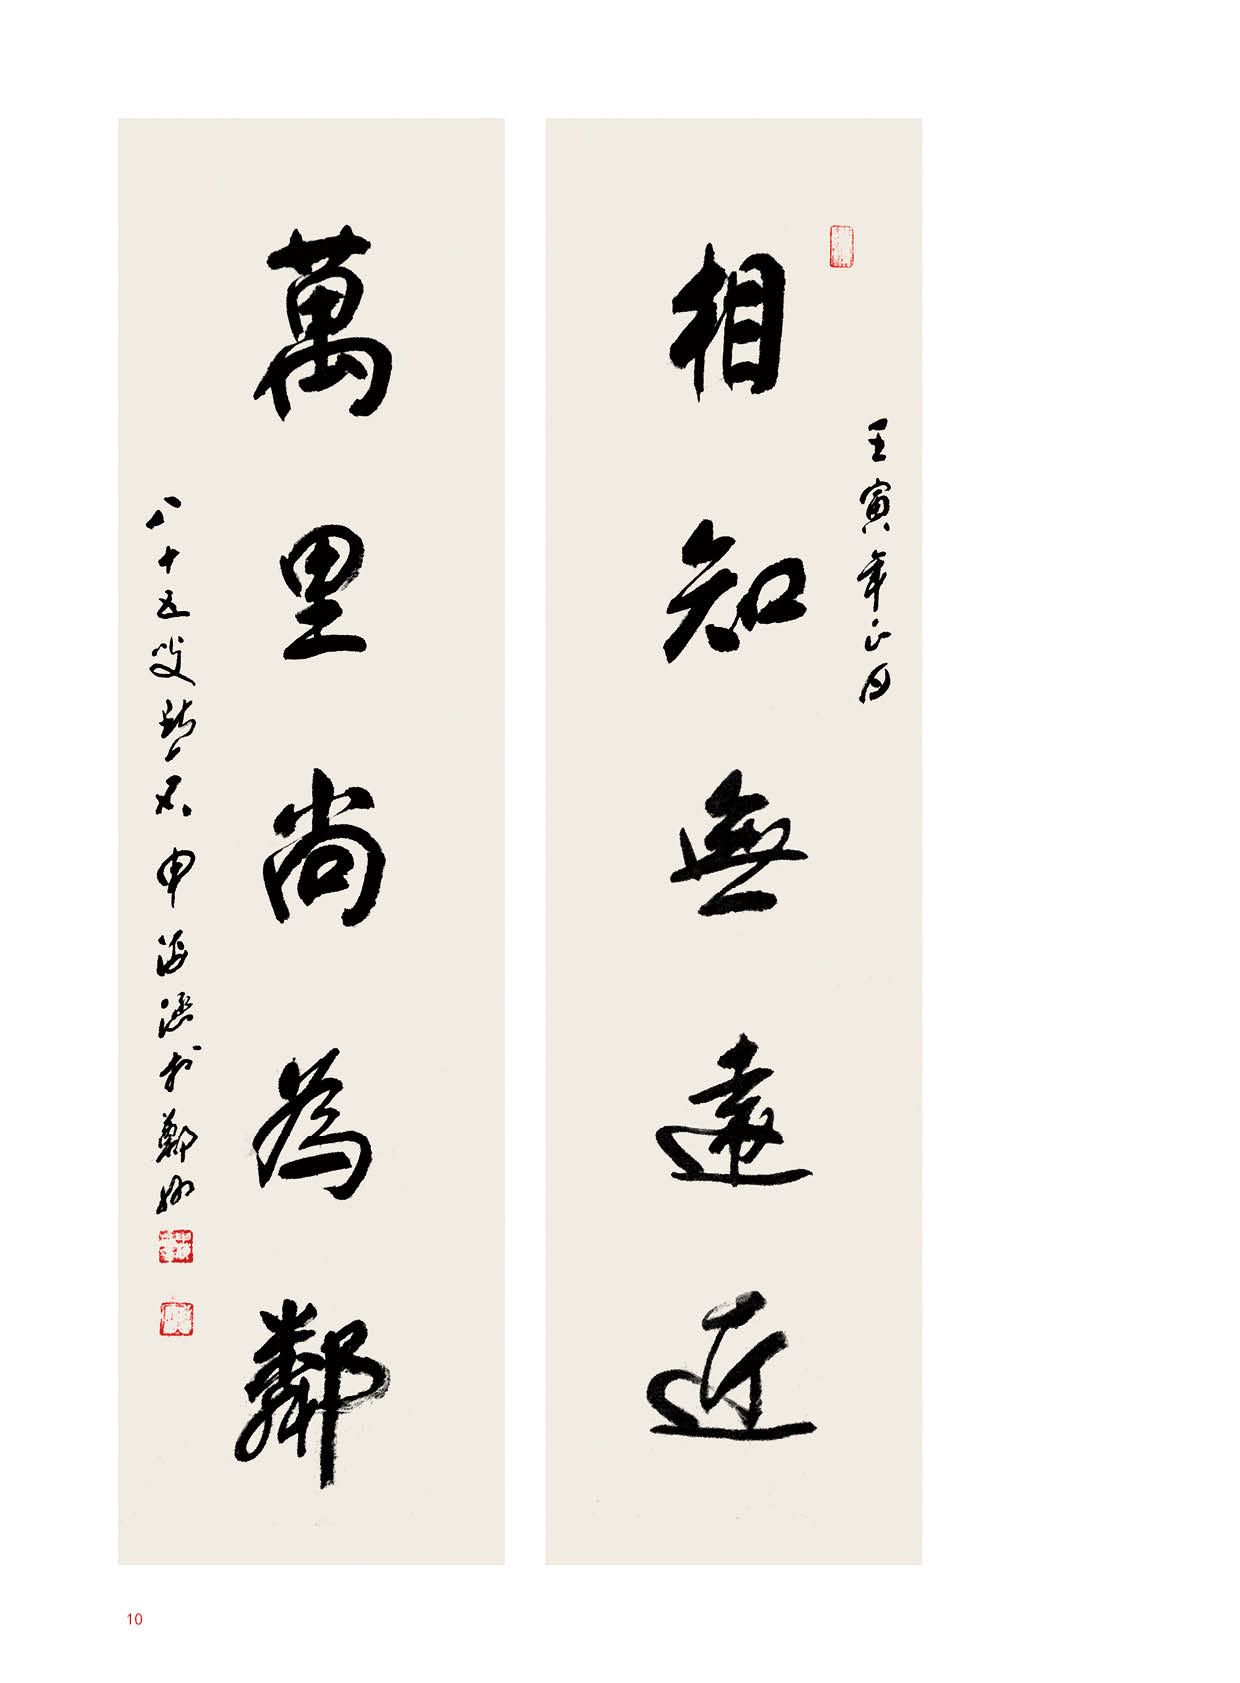 壬寅年正月
相知無遠近
萬里尚為鄰
八十五叟申海於鄭州
10